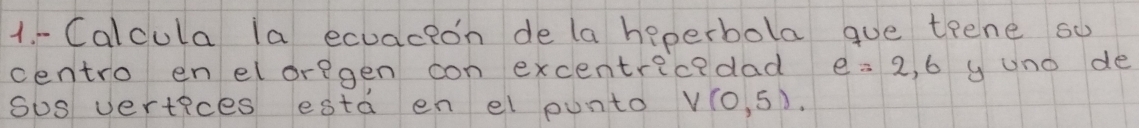 1.- Calcula la ecuación de la hiperbola que tiene su
centro en el origen con excentricidad e = 2,6 y uno de
sus vertices está en el punto V(0,5).